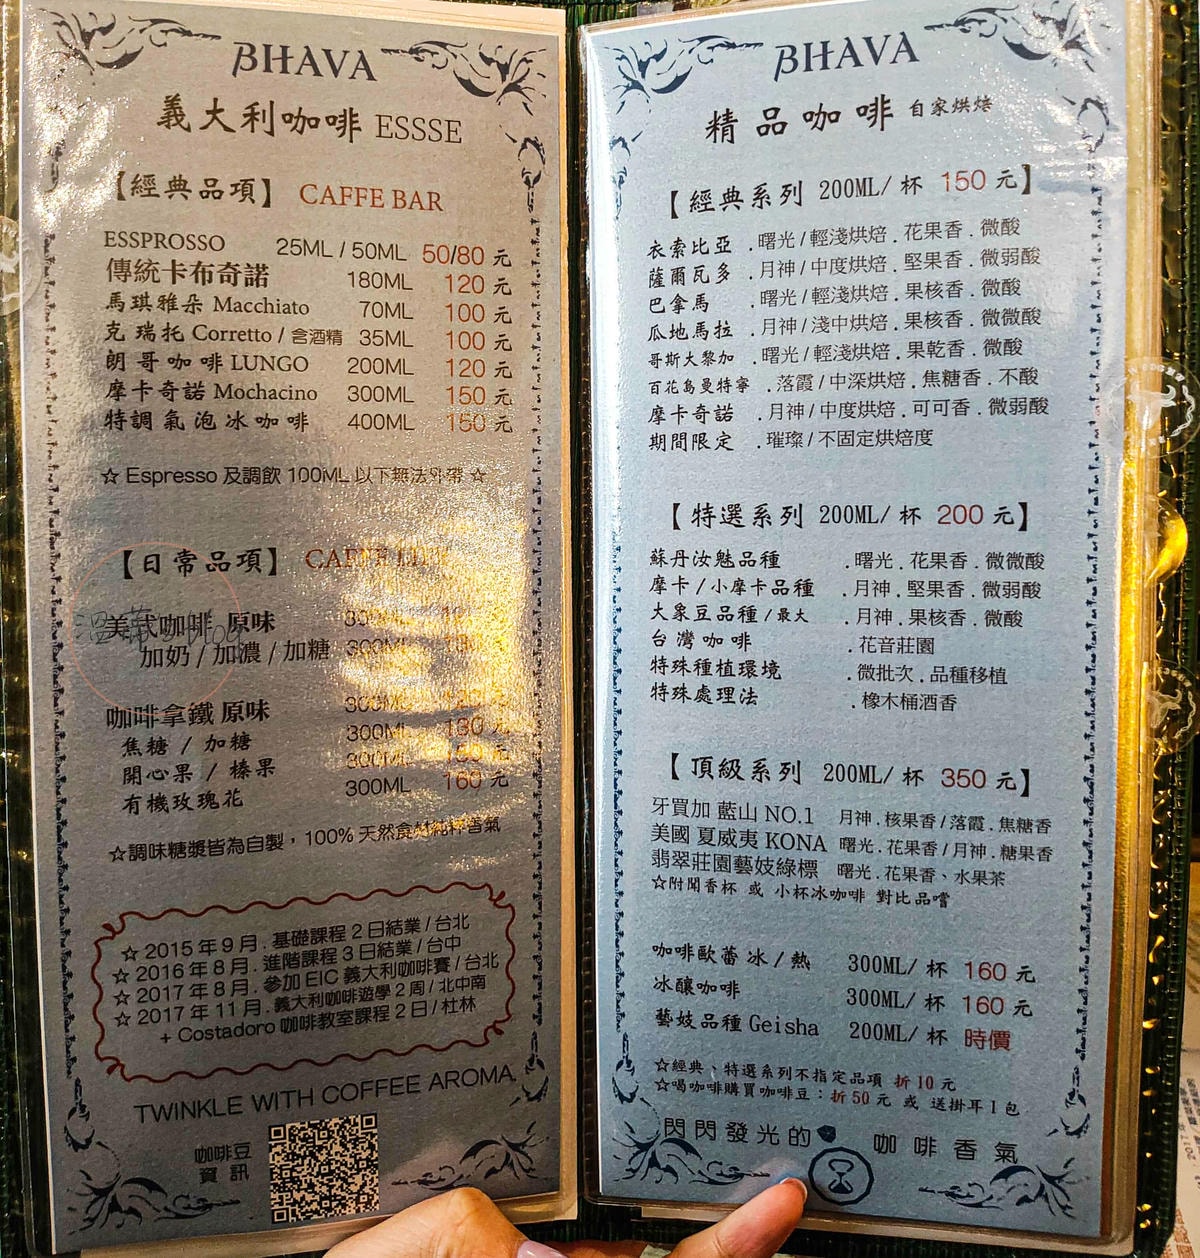 BHAVA
義大利咖啡 ESSSE
【經典品項】 CAFFE BAR
ESSPROSSO 25ML / 50ML 50/80 元
傳統卡布奇諾 180ML 120 元
馬琪雅朵 Macchiato 70ML 100 元
克瑞托 Corretto / 含酒精 35ML 100 元
朗哥咖啡 LUNGO 200ML 120 元
摩卡奇諾 Mochacino 300ML 150 元
特調氣泡冰咖啡 400ML 150 元
☆ Espresso 及調飲 100ML 以下無法外帶 ☆
【日常品項】
美式咖啡 原味 300ML
加奶 / 加濃 / 加糖 300ML
咖啡拿鐵 原味 300ML
焦糖 / 加糖 300ML 130 元
開心果 / 榛果 300ML 元
有機玫瑰花 300ML 160 元
☆調味糖漿皆為自製，100% 天然食材純粹香氣
☆ 2015 年 9 月 . 基礎課程 2 日結業 / 台北
☆ 2016 年 8 月 . 進階課程 3 日結業 / 台中
☆ 2017 年 8 月 . 參加 EIC 義大利咖啡賽 / 台北
☆ 2017 年 11 月 . 義大利咖啡遊學 2 周 / 北中南
+ Costadoro 咖啡教室課程 2 日 / 杜林
TWINKLE WITH COFFEE AROMA.
咖啡豆
資訊
BHAVA
精品咖啡 自家烘焙
【經典系列 200ML/ 杯 150 元】
衣索比亞 . 曙光 / 輕淺烘焙 . 花果香 . 微酸
薩爾瓦多 . 月神 / 中度烘焙 . 堅果香 . 微弱酸
巴拿馬 . 曙光 / 輕淺烘焙 . 果核香 . 微酸
瓜地馬拉 . 月神 / 淺中烘焙 . 果核香 . 微微酸
哥斯大黎加 . 曙光 / 輕淺烘焙 . 果乾香 . 微酸
百花島曼特寧 . 落霞 / 中深烘焙 . 焦糖香 . 不酸
摩卡奇諾 . 月神 / 中度烘焙 . 可可香 . 微弱酸
期間限定 . 璀璨 / 不固定烘焙度
【特選系列 200ML/ 杯 200 元】
蘇丹汝魅品種 . 曙光 . 花果香 . 微微酸
摩卡 / 小摩卡品種 . 月神 . 堅果香 . 微弱酸
大象豆品種 / 最大 . 月神 . 果核香 . 微酸
台灣咖啡 . 花音莊園
特殊種植環境 . 微批次 . 品種移植
特殊處理法 . 橡木桶酒香
【頂級系列 200ML/ 杯 350 元】
牙買加 藍山 NO.1 月神 . 核果香 / 落霞 . 焦糖香
美國 夏威夷 KONA 曙光 . 花果香 / 月神 . 糖果香
翡翠莊園藝妓綠標 曙光 . 花果香、水果茶
☆附聞香杯 或 小杯冰咖啡 對比品嚐
咖啡歐蕾 冰 / 熱 300ML/ 杯 160 元
冰釀咖啡 300ML/ 杯 160 元
藝妓品種 Geisha 200ML/ 杯 時價
☆經典、特選系列不指定品項 折 10 元
☆喝咖啡購買咖啡豆：折 50 元 或 送掛耳 1 包
閃閃發光的 咖啡香氣